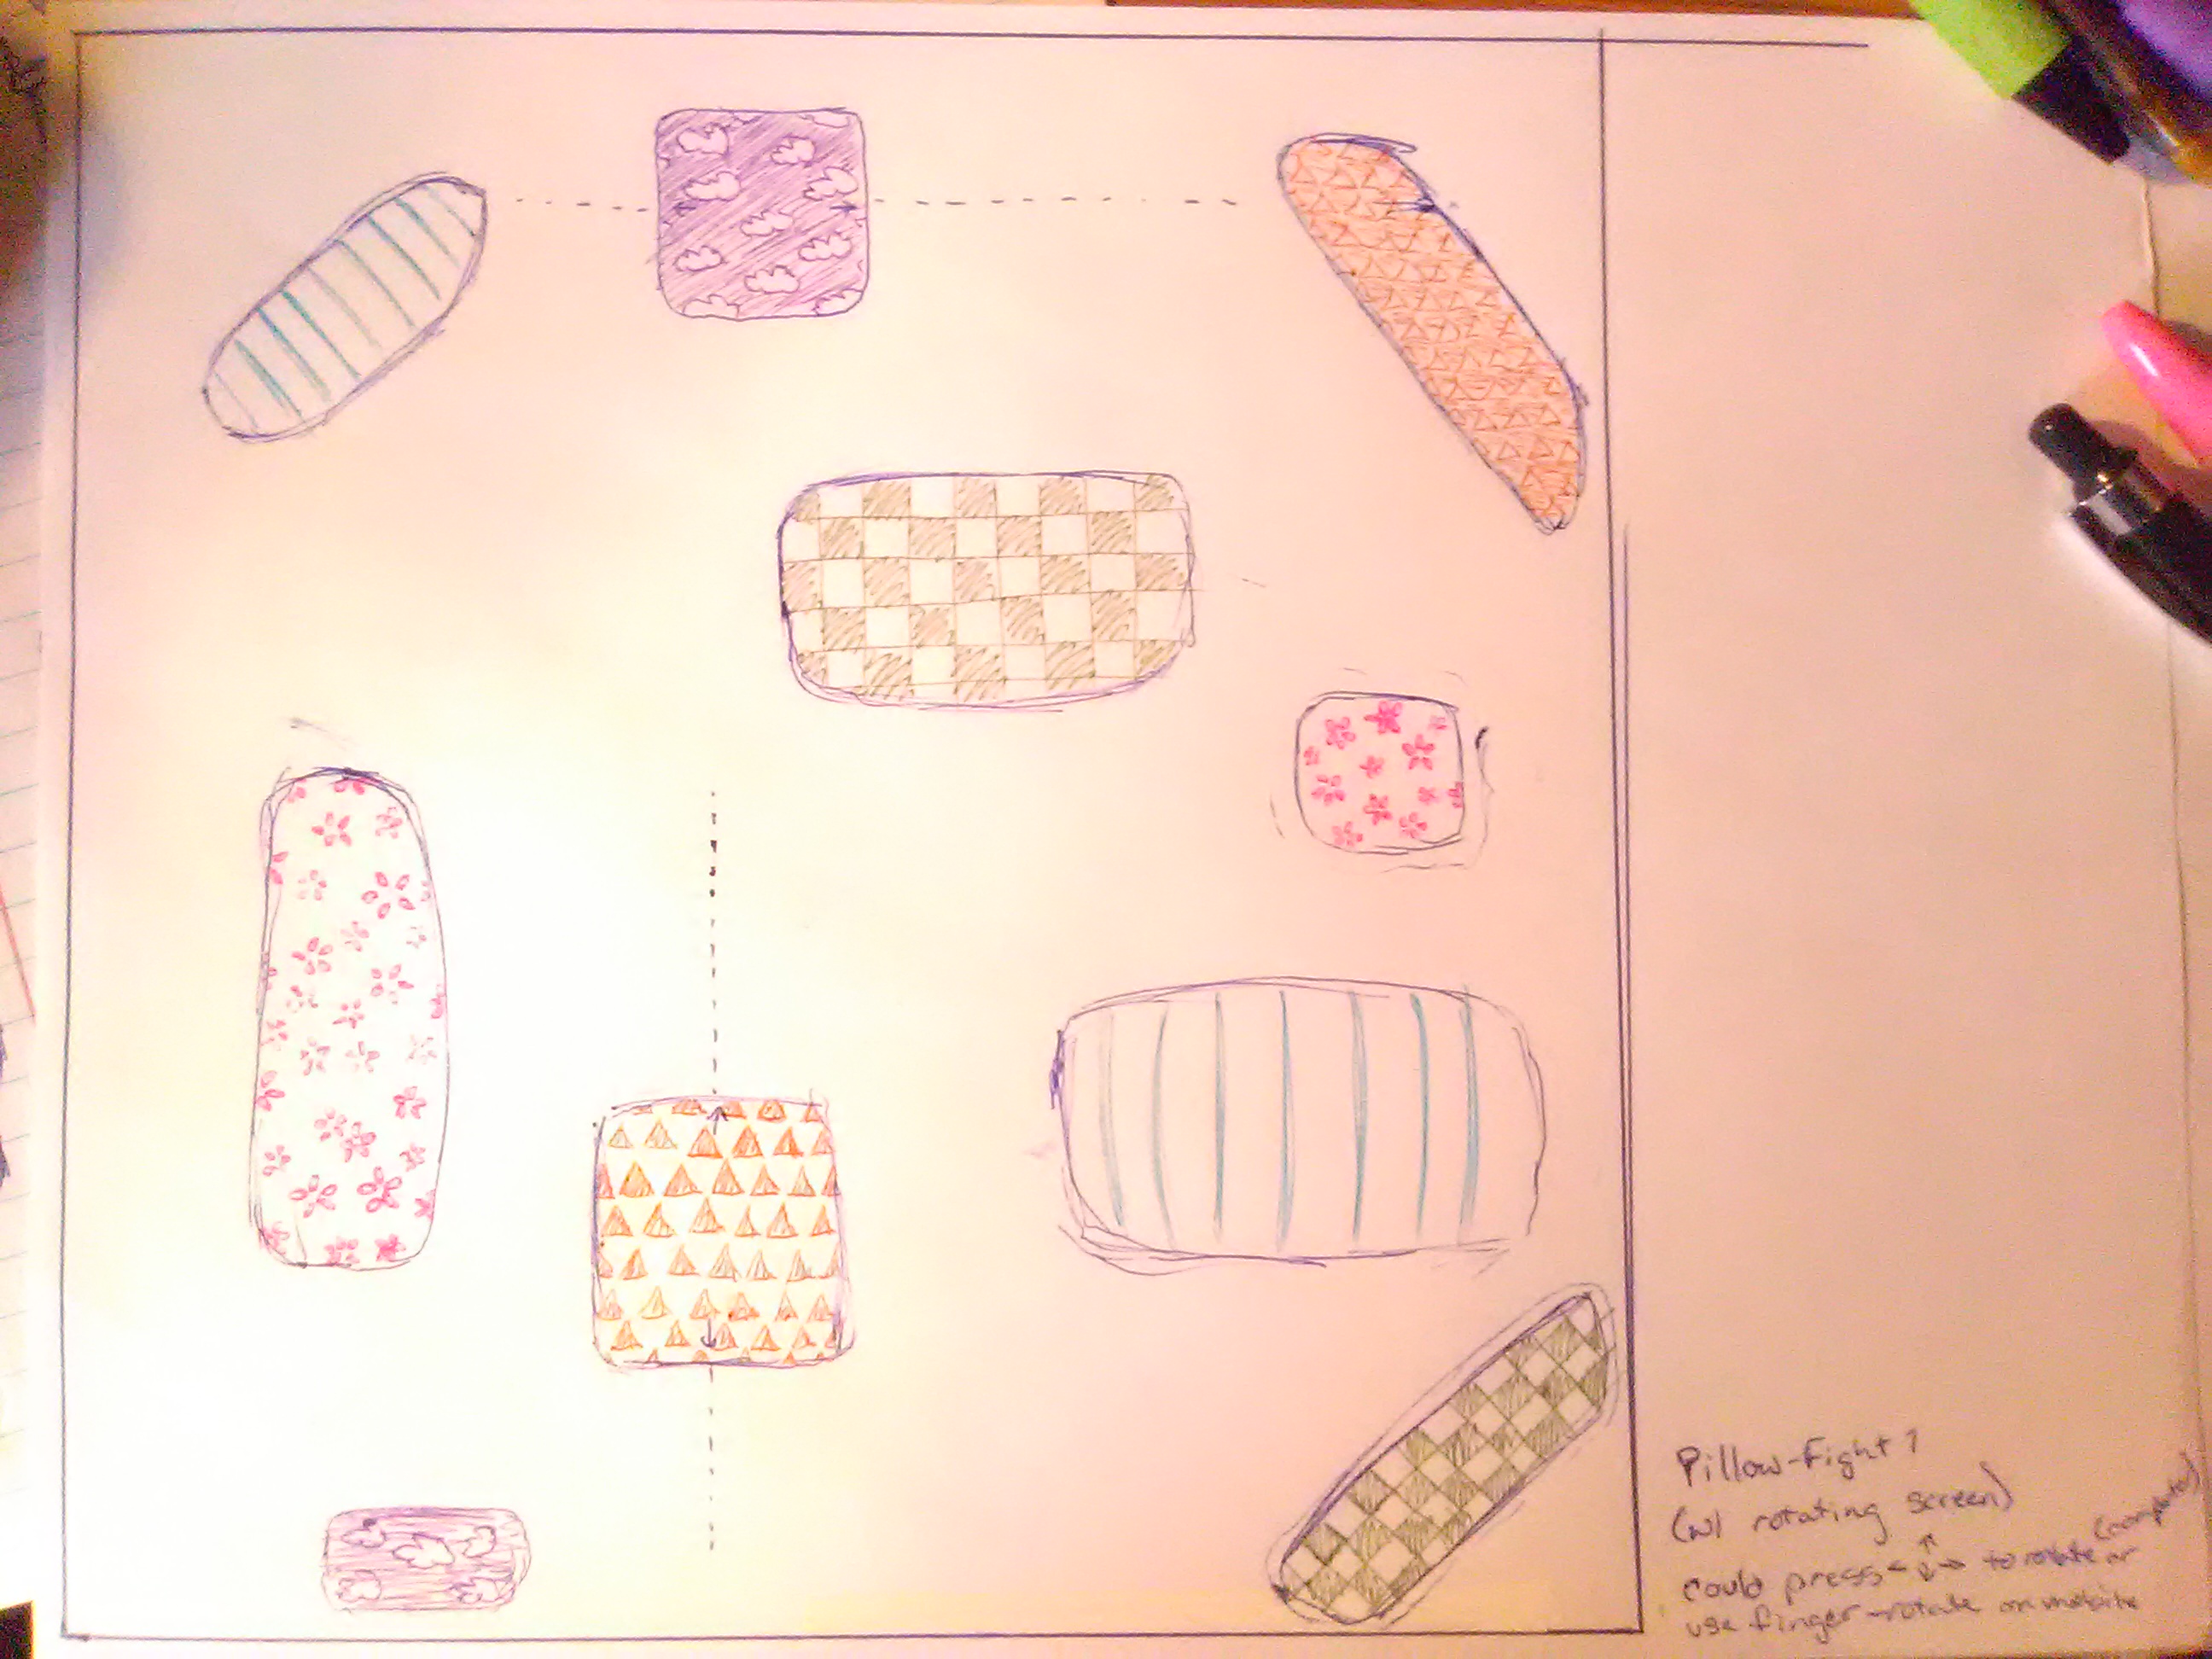 Pillow-Fight 1
(w/ rotating screen)
could press ← ↑ ↓ → to rotate (computer) or
use finger-rotate on mobile